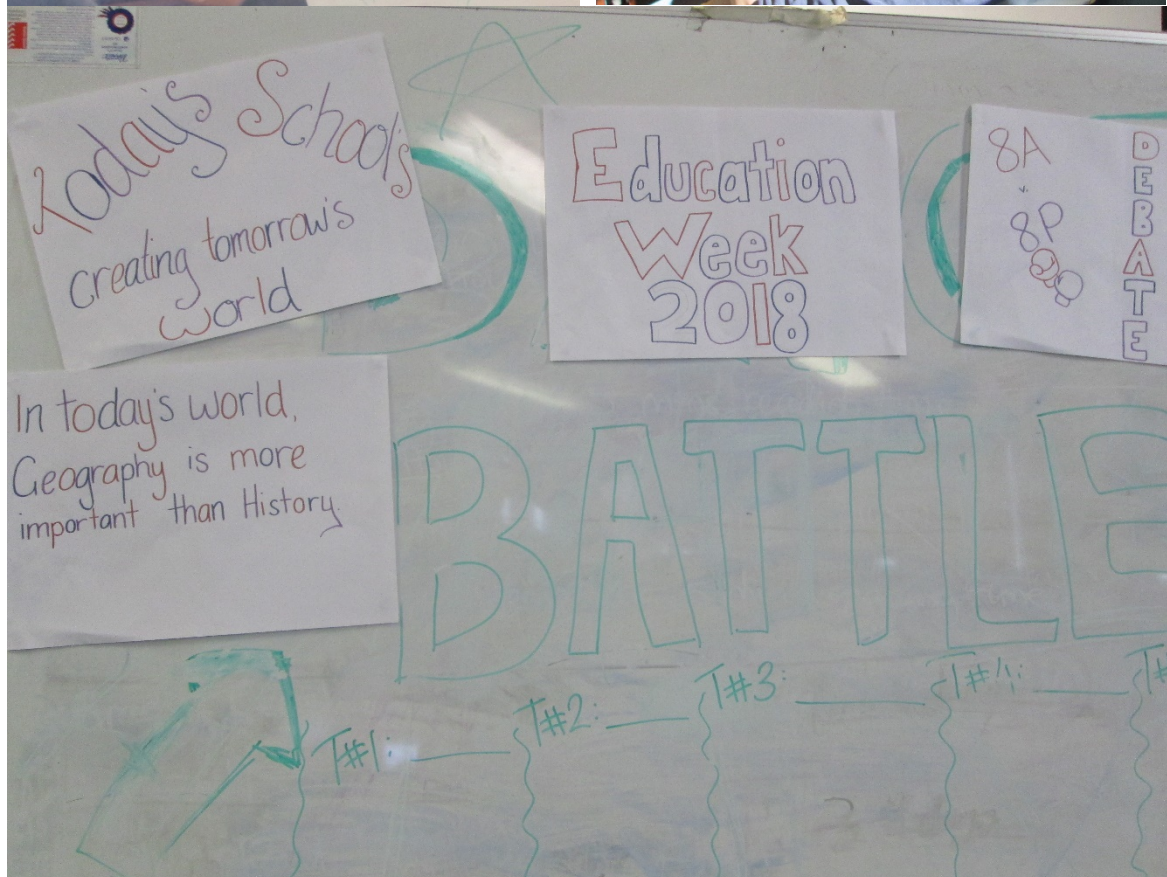 Today's Schools
creating tomorrow's
world
Education
Week
2018
8A
v.
8P
DEBATE
In today's world,
Geography is more
important than History
BATTLE
T#1:
T#2:
T#3:
T#4:
T#